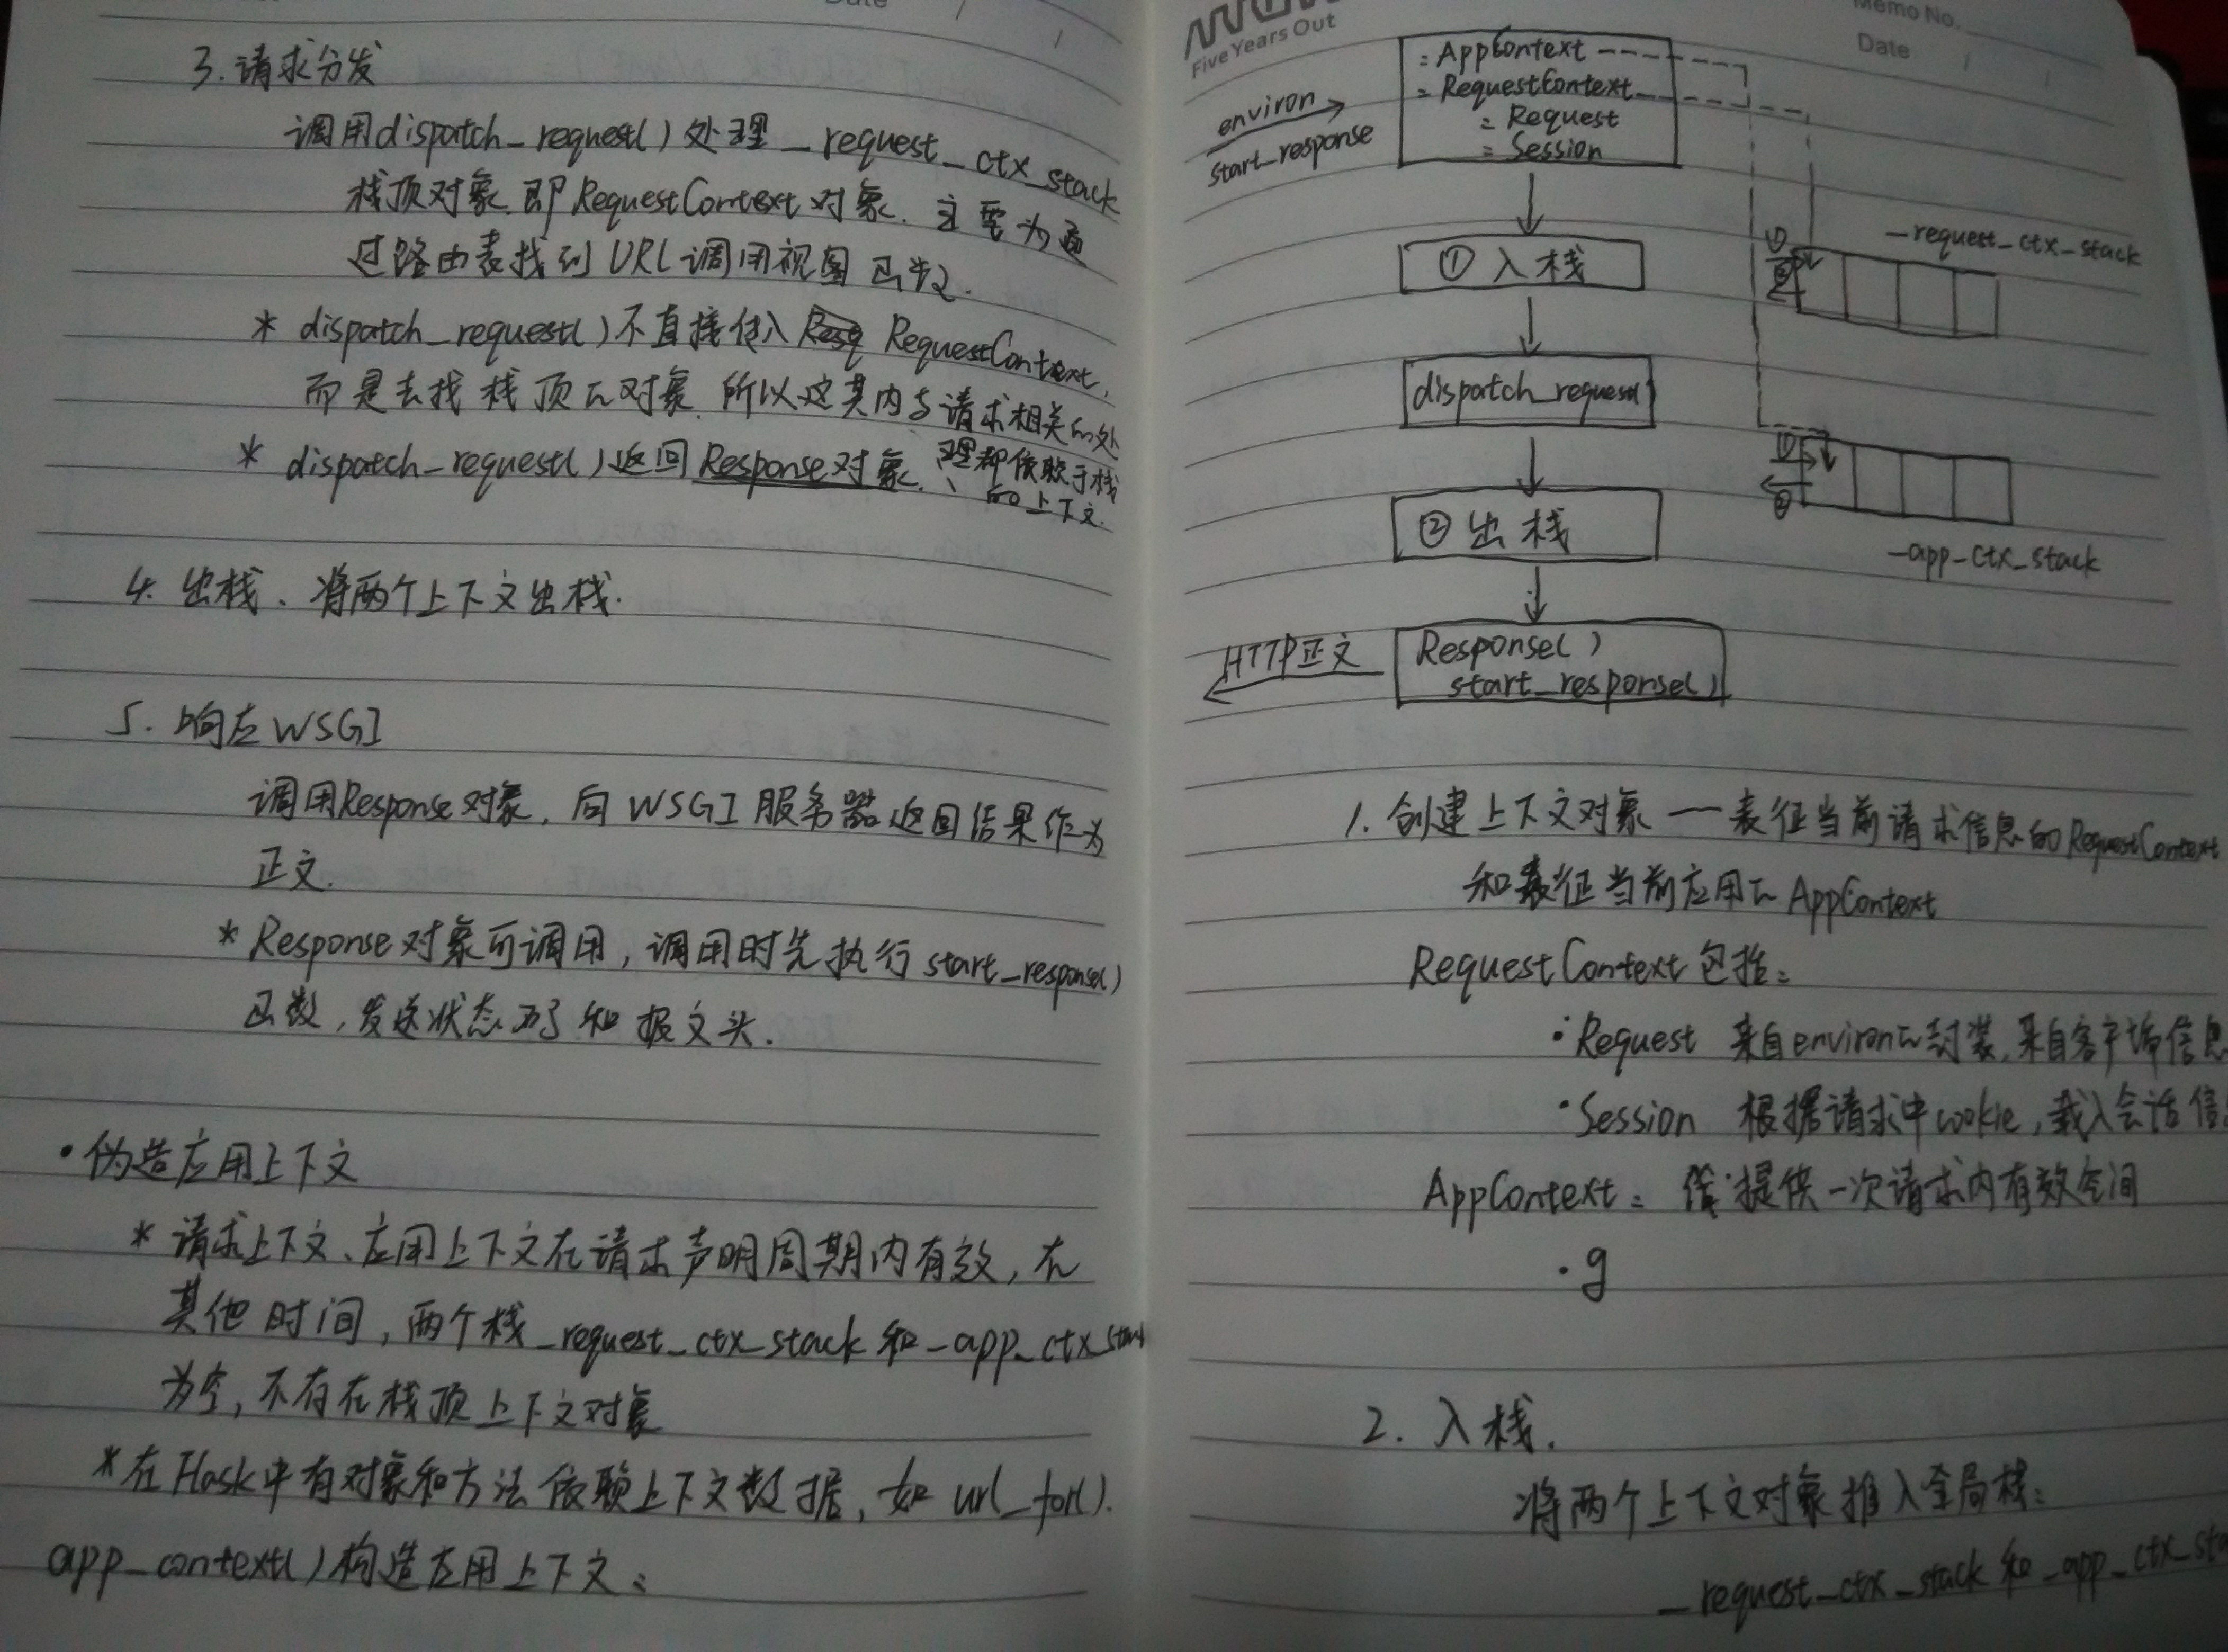 Date
3. 请求分发
调用dispatch_request()处理_request_ctx_stack
栈顶对象.即RequestContext对象.主要为通
过路由表找到URL调用视图函数.
* dispatch_request()不直接传入 RequestContext,
而是去找栈顶的对象.所以这其内与请求相关的处
理都依赖于栈
的上下文.
* dispatch_request()返回Response对象.
4. 出栈、将两个上下文出栈.
5. 响应WSGI
调用Response对象,向WSGI服务器返回结果作为
正文.
* Response对象可调用,调用时先执行start_response()
函数,发送状态码和报文头.
· 伪造应用上下文
* 请求上下文、应用上下文在请求声明周期内有效,在
其他时间,两个栈_request_ctx_stack和_app_ctx_stack
为空,不存在栈顶上下文对象
* 在Flask中有对象和方法依赖上下文数据,如url_for().
app_context()构造应用上下文:
Five Years Out
Memo No.
Date
environ
start_response
: AppContext
: RequestContext
: Request
: Session
① 入栈
dispatch_request
② 出栈
Response()
start_response()
HTTP正文
_request_ctx_stack
①
②
_app_ctx_stack
①
②
1. 创建上下文对象 — 表征当前请求信息的RequestContext
和表征当前应用的AppContext
RequestContext包括:
· Request 来自environ的封装,来自客户端信息
· Session 根据请求中cookie,载入会话信
AppContext: 提供一次请求内有效空间
· g
2. 入栈.
将两个上下文对象推入全局栈:
_request_ctx_stack和_app_ctx_sta